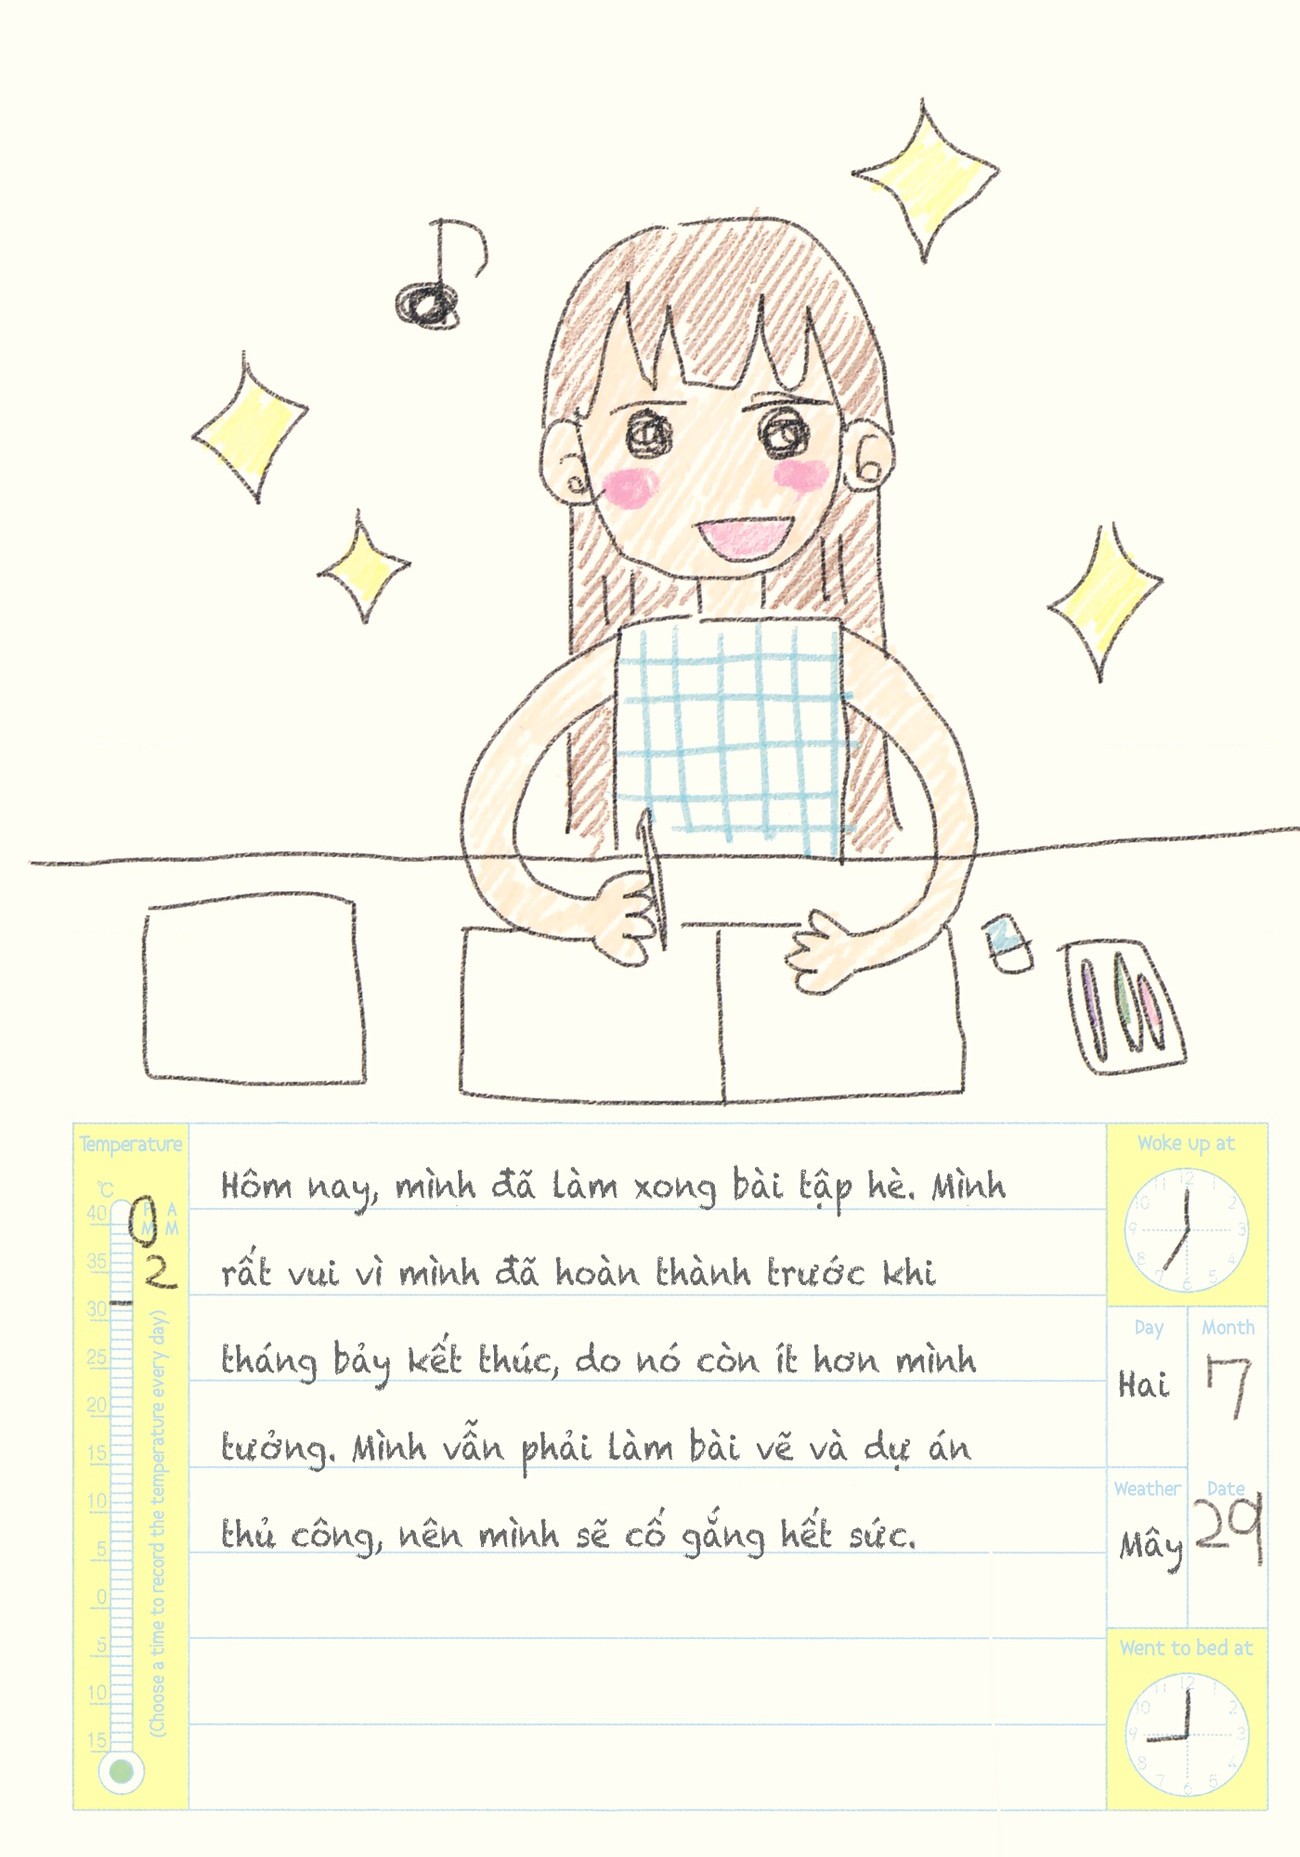 Temperature
℃
40
35
30
25
20
15
10
5
0
5
10
15
A
M
2
(Choose a time to record the temperature every day)
Hôm nay, mình đã làm xong bài tập hè. Mình
rất vui vì mình đã hoàn thành trước khi
tháng bảy kết thúc, do nó còn ít hơn mình
tưởng. Mình vẫn phải làm bài vẽ và dự án
thủ công, nên mình sẽ cố gắng hết sức.
Woke up at
12 1 2 3 4 5 6 7 8 9 10 11
Day Month
Hai 7
Weather Date
Mây 29
Went to bed at
12 1 2 3 4 5 6 7 8 9 10 11